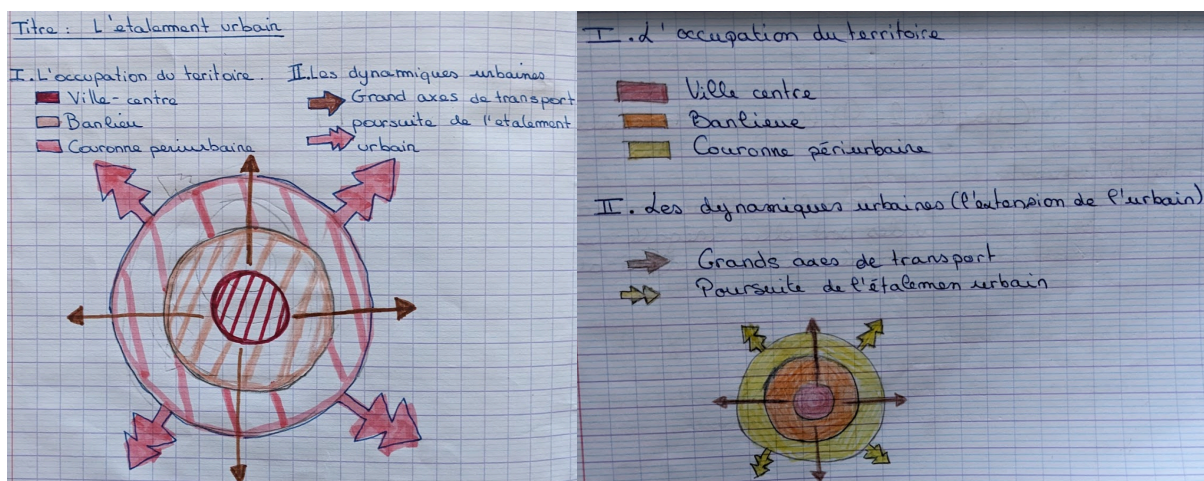 Titre : L'etalement urbain
I. L'occupation du teritoire.
Ville-centre
Banlieu
Couronne periurbaine
II. Les dynamiques urbaines
Grand axes de transport
poursuite de l'etalement
urbain
I. L'occupation du territoire
Ville centre
Banlieue
Couronne périurbaine
II. Les dynamiques urbaines (l'extension de l'urbain)
Grands axes de transport
Poursuite de l'étalemen urbain